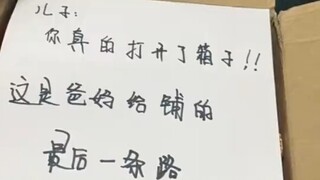 儿子：
你真的打开了箱子!!
这是爸妈给铺的
最后一条路